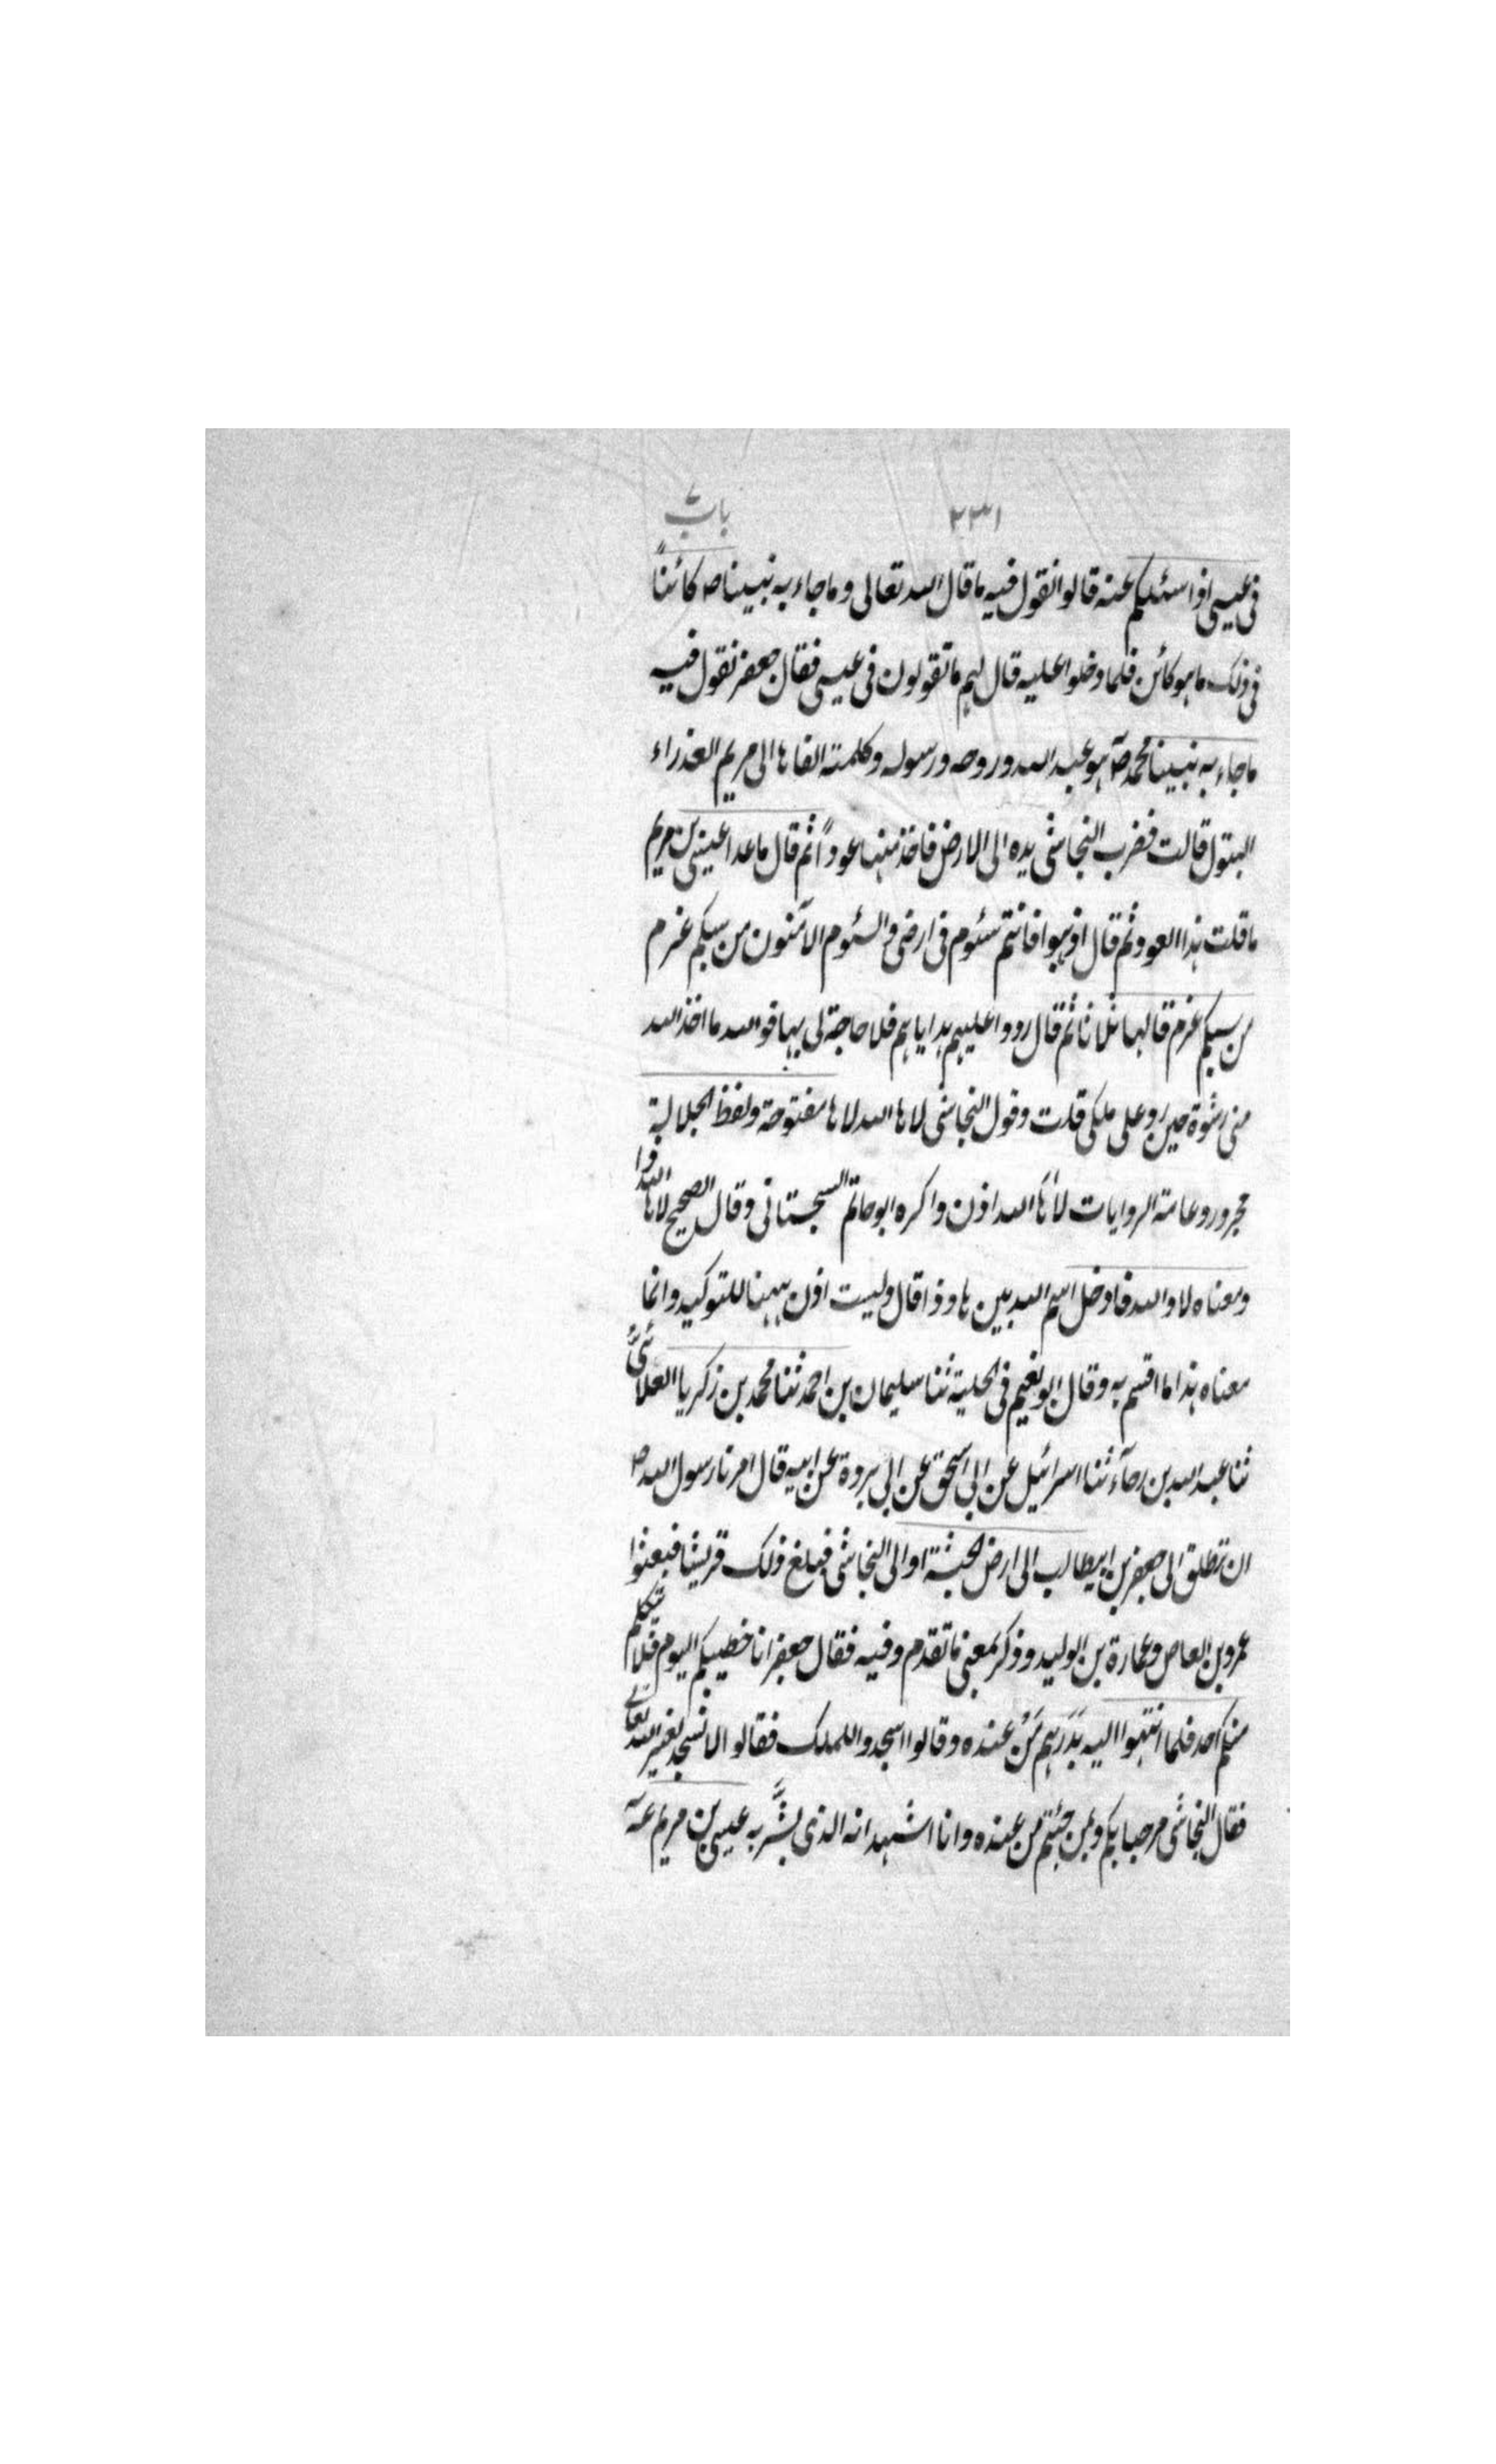 ٢٣١ باب
فی عیسی اذا سئلکم عنه قالوا نقول فیه ما قال الله تعالی وما جاء به نبینا ص کائناً
فی ذلک ما هو کائن فلما دخلوا علیه قال لهم ما تقولون فی عیسی فقال جعفر نقول فیه
ما جاء به نبینا محمد ص هو عبد الله وروحه ورسوله وکلمته القاها الی مریم العذراء
البتول قالت فضرب النجاشی یده الی الارض فاخذ منها عوداً ثم قال ما عدا عیسی بن مریم
ما قلت هذا العود ثم قال اذهبوا فانتم سئوم فی ارضی والسئوم الآمنون من سبکم غرم
من سبکم غرم قالها ثلاثا ثم قال ردوا علیهم هدایاهم فلا حاجة لی بها فوالله ما اخذ الله
منی رشوة حین رد علی ملکی قلت وقول النجاشی لاها الله لاها مفتوحة ولفظ الجلالة
مجرور وعامة الروایات لاها الله اذن وا کره ابو حاتم السجستانی وقال الصحیح لاها الله ذا
ومعناه لا والله فادخل اسم الله بین ها وذا قال ولیست اذن ههنا للتوکید وانما
معناه هذا ما اقسم به وقال ابو نعیم فی الحلیة ثنا سلیمان بن احمد ثنا محمد بن زکریا الغلابی
ثنا عبد الله بن رجآء ثنا اسرائیل عن ابی اسحق عن ابی بردة عن ابیه قال امرنا رسول الله ص
ان ننطلق الی جعفر بن ابیطالب الی ارض الحبشة او الی النجاشی فبلغ ذلک قریشا فبعثوا
عمرو بن العاص وعمارة بن الولید وذکر بمعنی ما تقدم وفیه فقال جعفر انا خطیبکم الیوم فلا تکلم
منکم احد فلما انتهوا الیه بَدَرهم مَن عنده وقالوا اسجدوا للملک فقالوا لا نسجد لغیر الله تعالی
فقال النجاشی مرحبا بکم وبمن جئتم من عنده وانا اشهد انه الذی بشّر به عیسی بن مریم عه